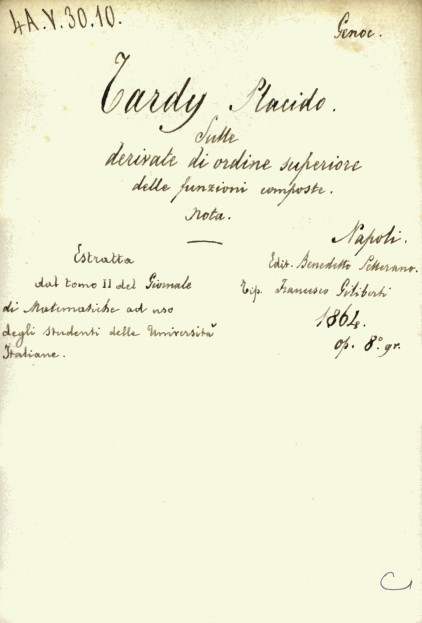 4A.V.30.10.
Genoc.
Tardy Placido.
Sulle
derivate di ordine superiore
delle funzioni composte.
Nota.
Estratta
dal tomo II del Giornale
di Matematiche ad uso
degli studenti delle Università
Italiane.
Napoli.
Edit. Benedetto Pellerano.
Tip. Francesco Giliberti
1864.
op. 8.° gr.